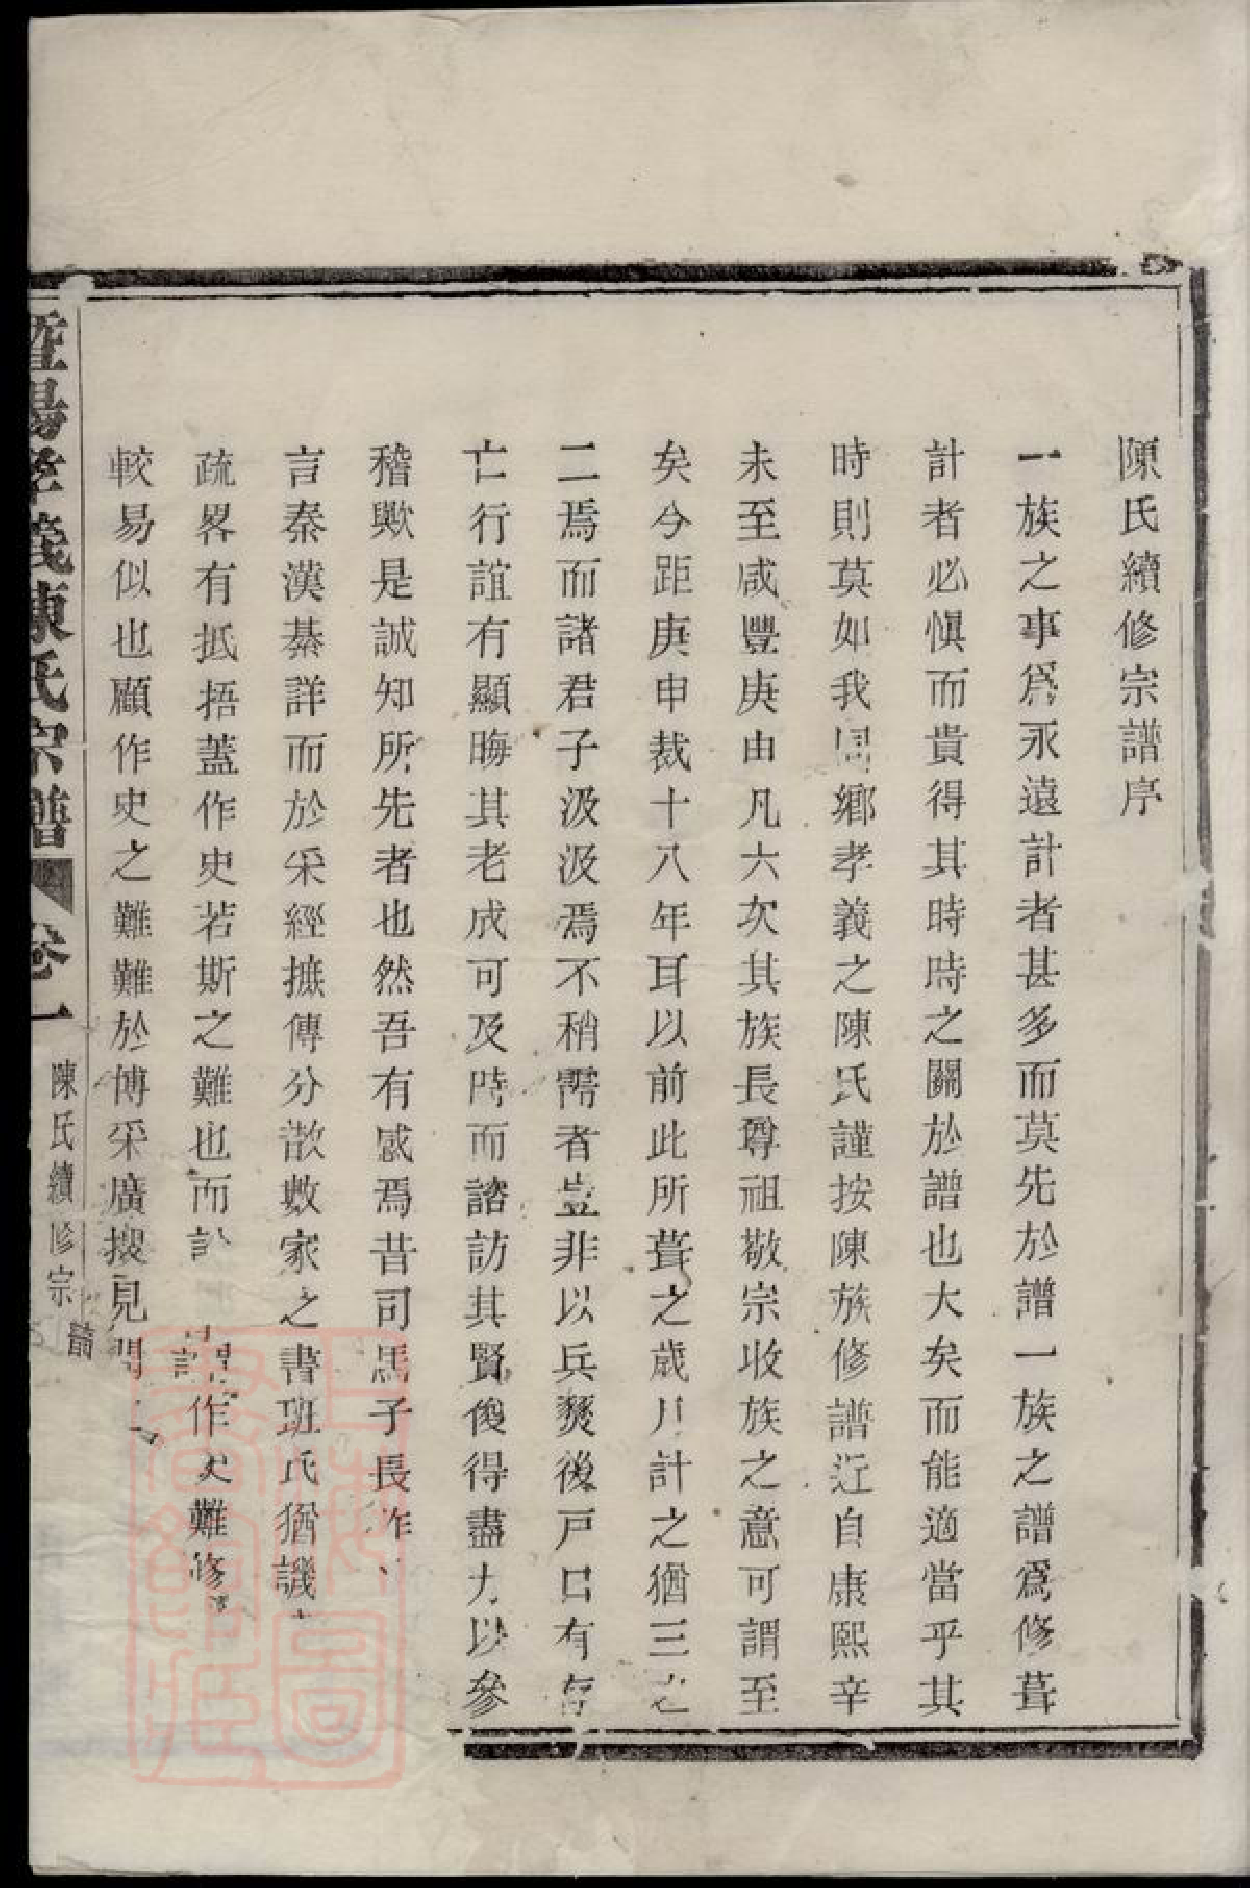 陳氏續修宗譜序
一族之事爲永遠計者甚多而莫先於譜一族之譜爲修葺
計者必慎而貴得其時時之關於譜也大矣而能適當乎其
時則莫如我同鄉孝義之陳氏謹按陳族修譜近自康熙辛
未至咸豐庚申凡六次其族長尊祖敬宗收族之意可謂至
矣今距庚申裁十八年耳以前此所葺之歲月計之猶三之
二焉而諸君子汲汲焉不稍需者豈非以兵燹後戸口有存
亡行誼有顯晦其老成可及時而諮訪其賢俊得盡力以參
稽歟是誠知所先者也然吾有感焉昔司馬子長作
言秦漢綦詳而於采經摭傳分散數家之書班氏猶譏
疏畧有抵捂蓋作史若斯之難也而 作史難修
較易似也顧作史之難難於博采廣搜見聞
暨陽孝義陳氏宗譜 卷一 陳氏續修宗譜
上海圖書館藏